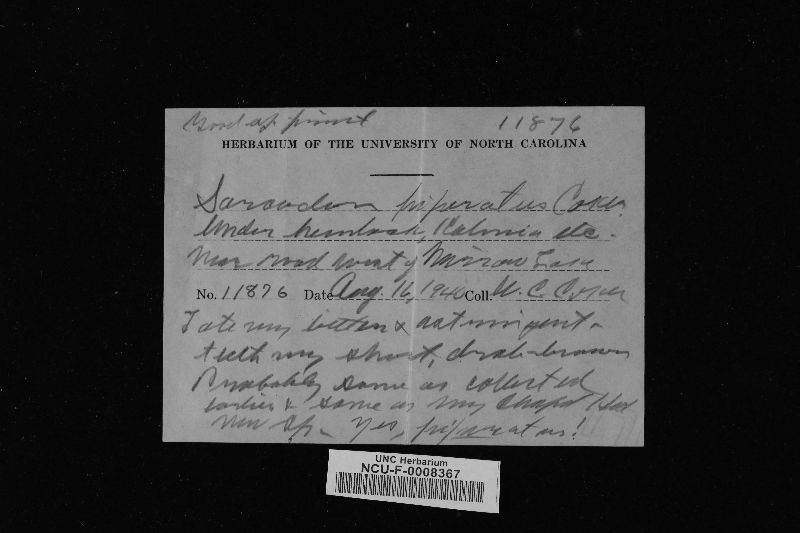 Good sp. print 11876
HERBARIUM OF THE UNIVERSITY OF NORTH CAROLINA
Sarcodon piperatus Coker
Under hemlock, Kalmia etc.
Near road west of Mirror Lake
No. 11876 Date Aug. 16, 1940 Coll. W. C. Coker
Taste very bitter & astringent-
teeth very short, drab-brown
Probably same as collected
earlier & same as my Chapel Hill
new sp. Yes, piperatus!
UNC Herbarium
NCU-F-0008367